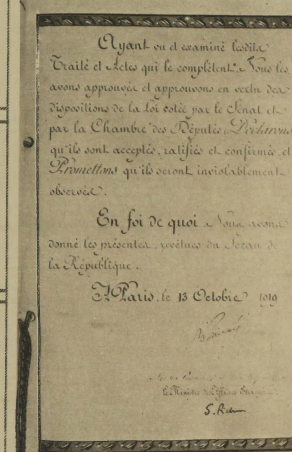 Ayant vu et examiné lesdits
Traité et Actes qui le complètent Nous les
avons approuvés et approuvons en vertu des
dispositions de la Loi votée par le Sénat et
par la Chambre des Députés, Déclarons
qu'ils sont acceptés, ratifiés et confirmés, et
Promettons qu'ils seront inviolablement
observés.
En foi de quoi Nous avons
donné les présentes, revêtues du Sceau de
la République.
A Paris, le 13 Octobre 1919
Le Ministre des Affaires Etrangères
S. Pichon